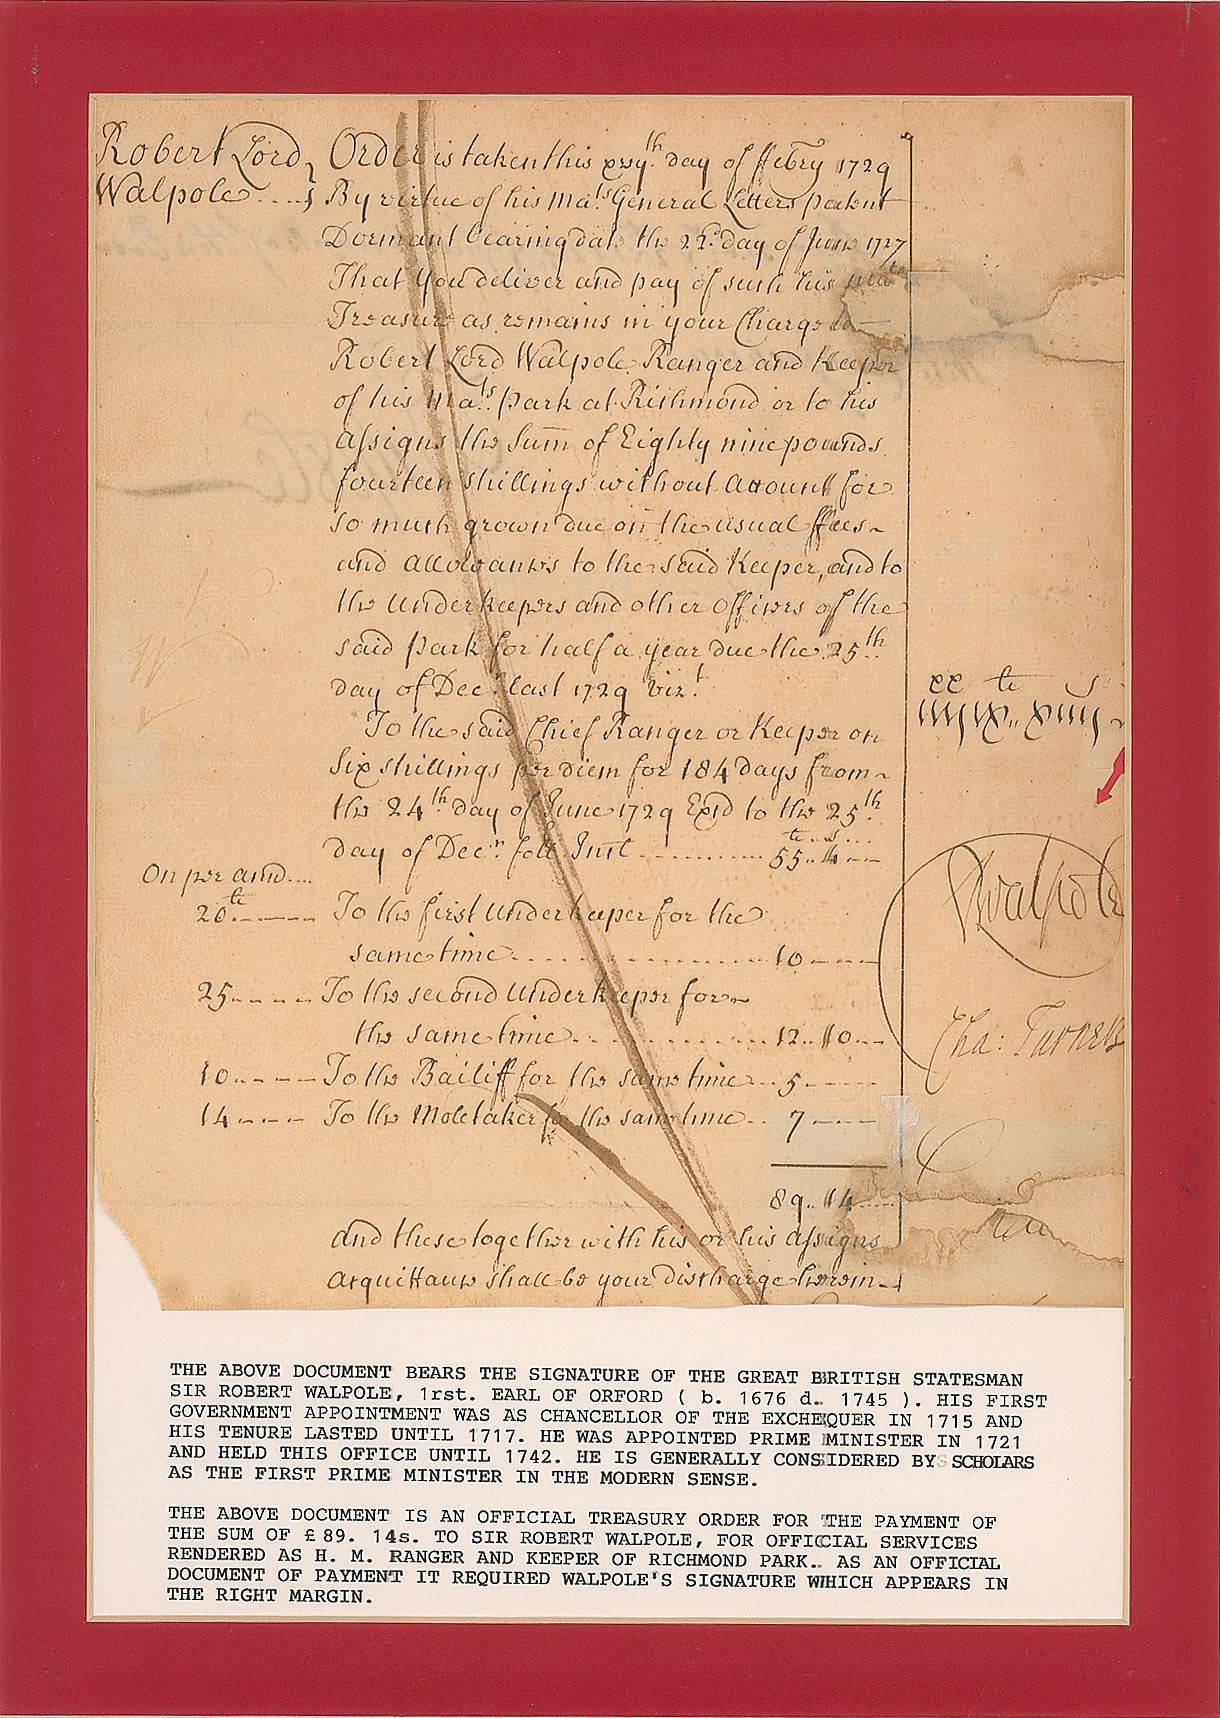 Robert Lord
Walpole
Order is taken this xxvjth. day of ffebry 1729
By virtue of his Mats General Letters patent
Dormant bearing date the 22d day of June 1727
That you deliver and pay of such his Mats
Treasure as remains in your Charge to
Robert Lord Walpole Ranger and Keeper
of his Mats. Park at Richmond or to his
assigns the Sum of Eighty nine pounds
fourteen shillings without account for
so much grown due on the usual ffees
and allowances to the said Keeper, and to
the underkeepers and other officers of the
said Park for half a year due the 25th
day of Decr last 1729 vizt
To the said Chief Ranger or Keeper on
six shillings per diem for 184 days from
the 24th day of June 1729 Exd to the 25th
day of Decr. foll. Inst ............ 55 .. 4 ---
On per ann ....
20 ----- To the first underkeeper for the
same time ............ 10 ----
25 ---- To the second underkeeper for
the same time ............ 12 .. 10 --
10 ---- To the Bailiff for the same time .. 5 ----
14 ---- To the Moletaker for the same time .. 7 ----
89 .. 14 ---
And these together with his or his assigns
acquittance shall be your discharge herein
RWalpole
Cha: Turner
THE ABOVE DOCUMENT BEARS THE SIGNATURE OF THE GREAT BRITISH STATESMAN
SIR ROBERT WALPOLE, 1rst. EARL OF ORFORD ( b. 1676 d. 1745 ). HIS FIRST
GOVERNMENT APPOINTMENT WAS AS CHANCELLOR OF THE EXCHEQUER IN 1715 AND
HIS TENURE LASTED UNTIL 1717. HE WAS APPOINTED PRIME MINISTER IN 1721
AND HELD THIS OFFICE UNTIL 1742. HE IS GENERALLY CONSIDERED BY SCHOLARS
AS THE FIRST PRIME MINISTER IN THE MODERN SENSE.
THE ABOVE DOCUMENT IS AN OFFICIAL TREASURY ORDER FOR THE PAYMENT OF
THE SUM OF £89. 14s. TO SIR ROBERT WALPOLE, FOR OFFICIAL SERVICES
RENDERED AS H. M. RANGER AND KEEPER OF RICHMOND PARK.. AS AN OFFICIAL
DOCUMENT OF PAYMENT IT REQUIRED WALPOLE'S SIGNATURE WHICH APPEARS IN
THE RIGHT MARGIN.